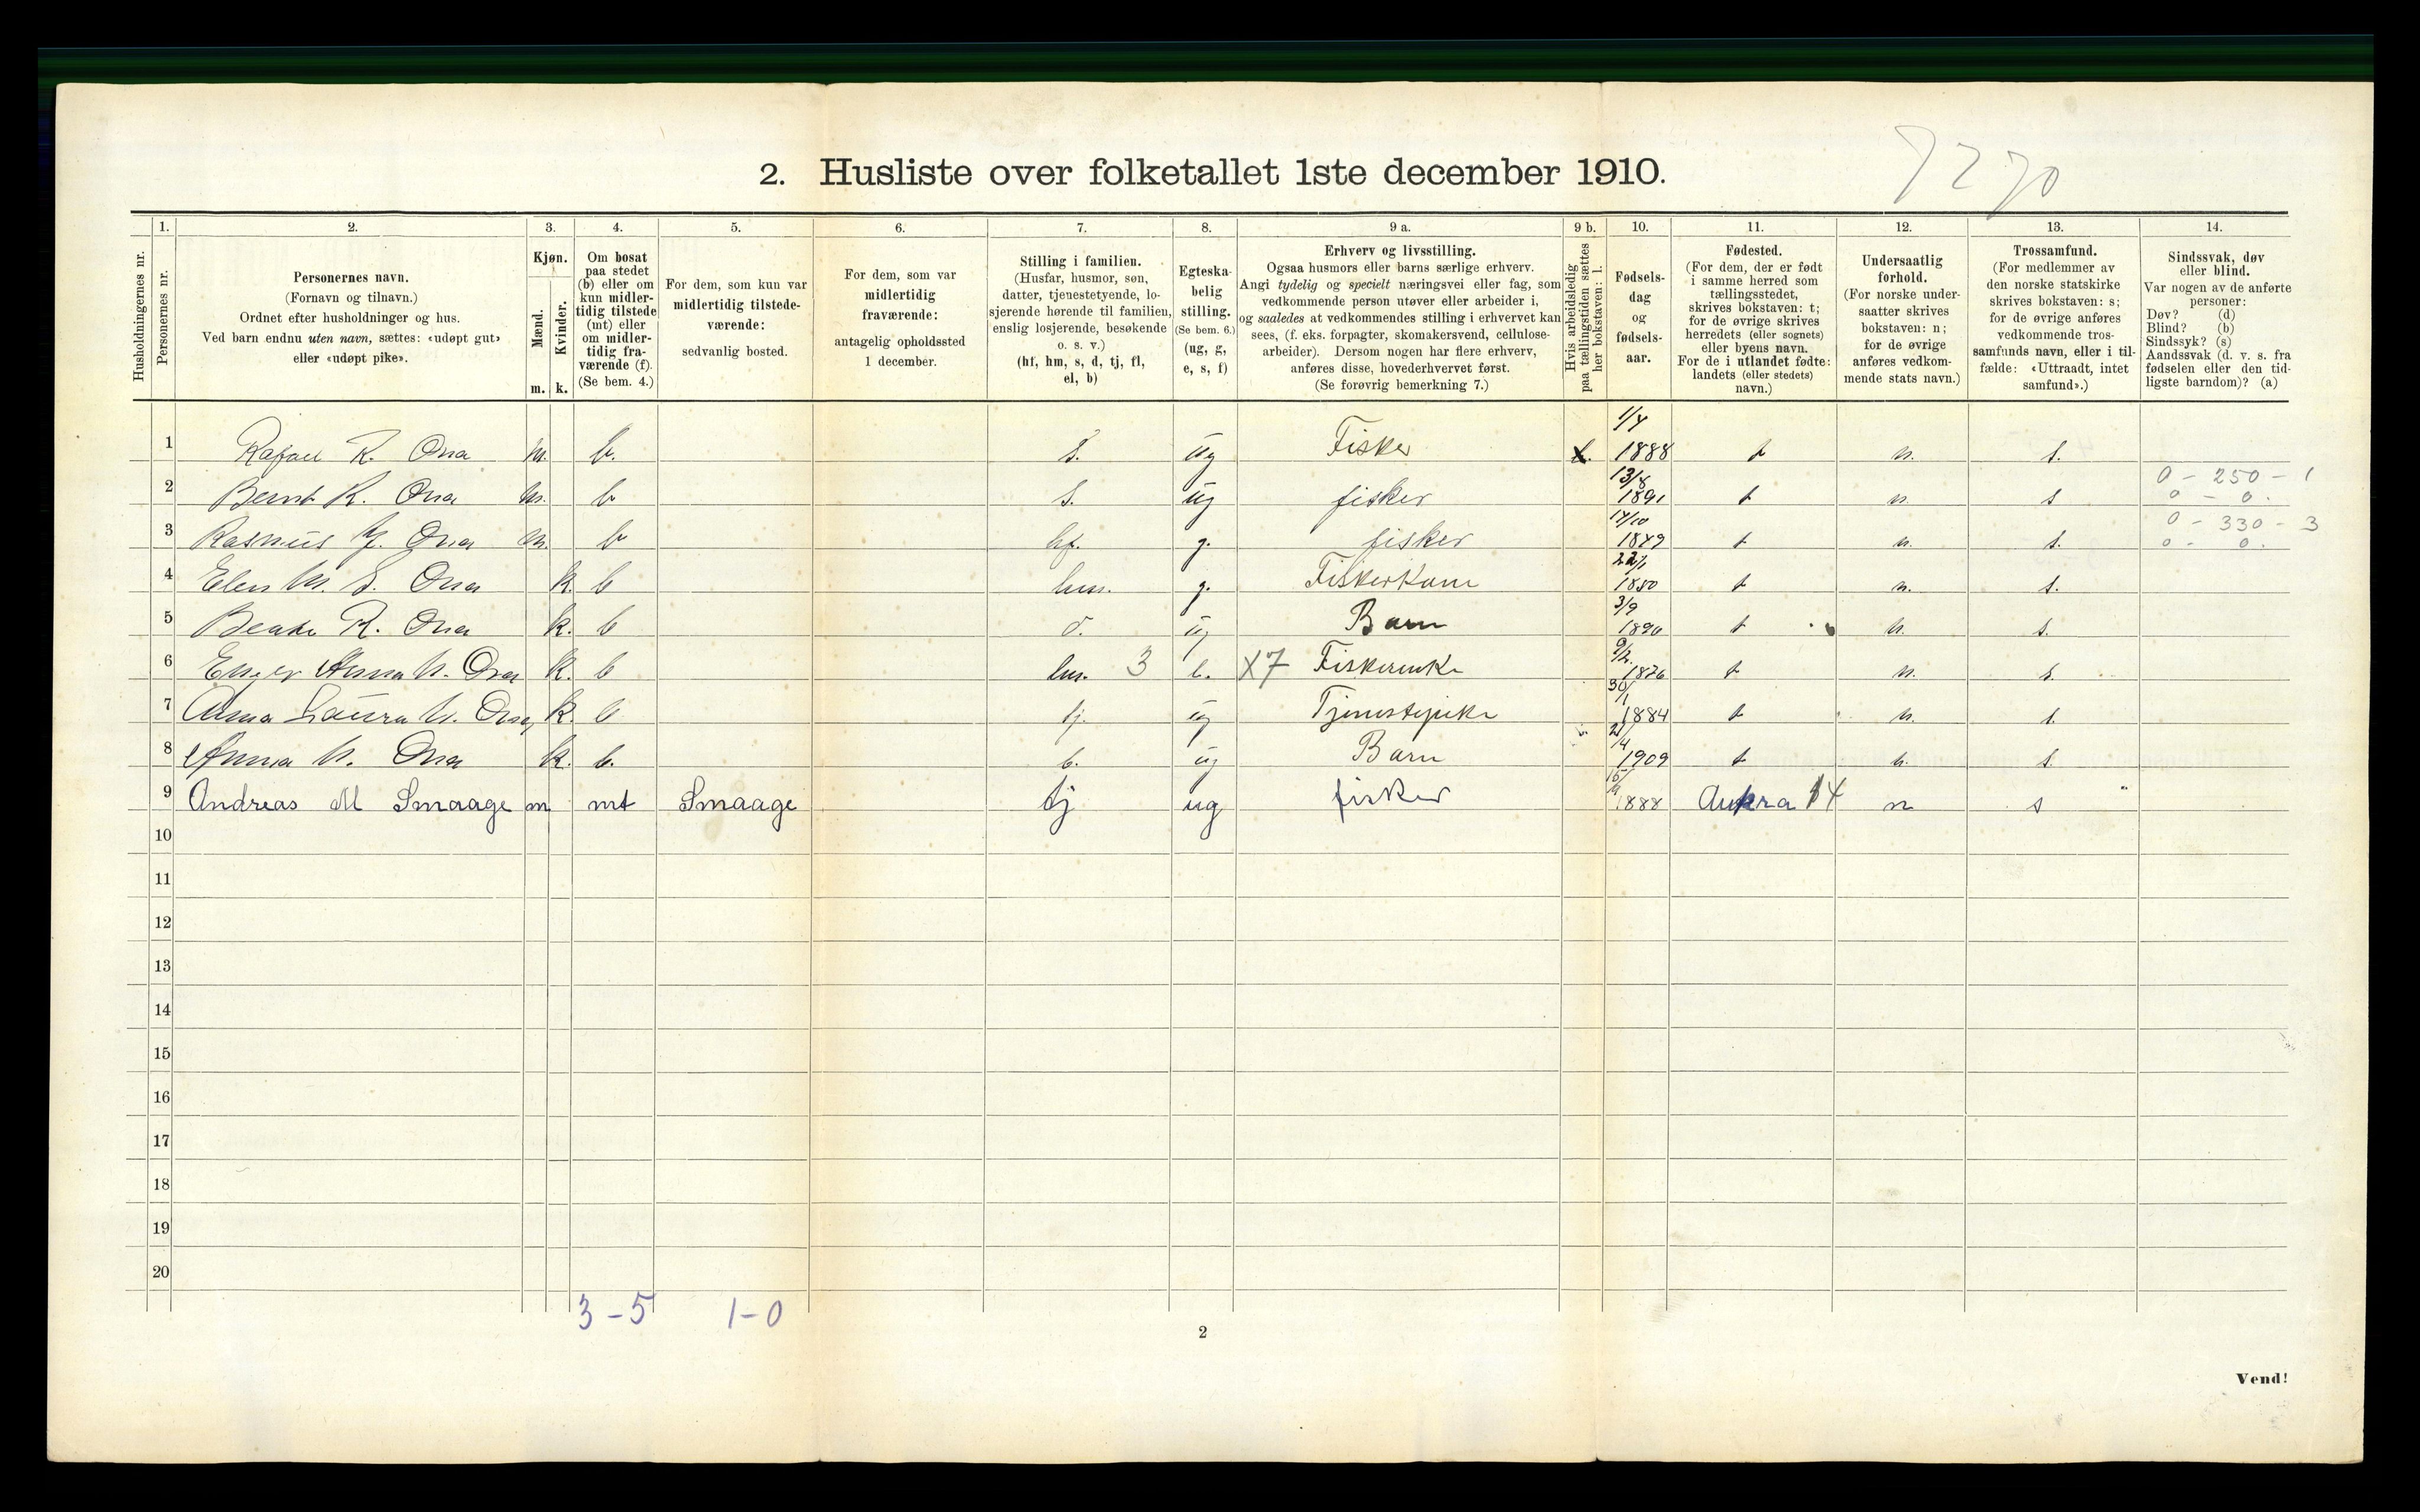 2. Husliste over folketallet 1ste december 1910.
7270
Husholdningernes nr.
1.
Personernes nr.
2.
Personernes navn.
(Fornavn og tilnavn.)
Ordnet efter husholdninger og hus.
Ved barn endnu uten navn, sættes: «udøpt gut»
eller «udøpt pike».
3.
Kjøn.
Mænd.
Kvinder.
m. k.
4.
Om bosat
paa stedet
(b) eller om
kun midler-
tidig tilstede
(mt) eller
om midler-
tidig fra-
værende (f).
(Se bem. 4.)
5.
For dem, som kun var
midlertidig tilstede-
værende:
sedvanlig bosted.
6.
For dem, som var
midlertidig
fraværende:
antagelig opholdssted
1 december.
7.
Stilling i familien.
(Husfar, husmor, søn,
datter, tjenestetyende, lo-
sjerende hørende til familien,
enslig losjerende, besøkende
o. s. v.)
(hf, hm, s, d, tj, fl,
el, b)
8.
Egteska-
belig
stilling.
(Se bem. 6.)
(ug, g,
e, s, f)
9 a.
Erhverv og livsstilling.
Ogsaa husmors eller barns særlige erhverv.
Angi tydelig og specielt næringsvei eller fag, som
vedkommende person utøver eller arbeider i,
og saaledes at vedkommendes stilling i erhvervet kan
sees, (f. eks. forpagter, skomakersvend, cellulose-
arbeider). Dersom nogen har flere erhverv,
anføres disse, hovederhvervet først.
(Se forøvrig bemerkning 7.)
9 b.
Hvis arbeidsledig
paa tællingstiden sættes
her bokstaven: l.
10.
Fødsels-
dag
og
fødsels-
aar.
11.
Fødested.
(For dem, der er født
i samme herred som
tællingsstedet,
skrives bokstaven: t;
for de øvrige skrives
herredets (eller sognets)
eller byens navn.
For de i utlandet fødte:
landets (eller stedets)
navn.)
12.
Undersaatlig
forhold.
(For norske under-
saatter skrives
bokstaven: n;
for de øvrige
anføres vedkom-
mende stats navn.)
13.
Trossamfund.
(For medlemmer av
den norske statskirke
skrives bokstaven: s;
for de øvrige anføres
vedkommende tros-
samfunds navn, eller i til-
fælde: «Uttraadt, intet
samfund».)
14.
Sindssvak, døv
eller blind.
Var nogen av de anførte
personer:
Døv? (d)
Blind? (b)
Sindssyk? (s)
Aandssvak (d. v. s. fra
fødselen eller den tid-
ligste barndom)? (a)
1 Rafael R. Ona m. b. s. ug Fisker 1/4 1888 t n. s.
2 Bernt R. Ona m. b s. ug fisker 13/8 1891 t n. s 0 - 250 - 1 0 - 0.
3 Rasmus Ona m. b hf. g. fisker 14/10 1849 t n. s. 0 - 330 - 3 0 - 0.
4 Elen M. S. Ona k. b hm. g. FiskerKone 1850 t n. s.
5 Beate R. Ona k. b d. ug Barn 3/9 1890 t n. s.
6 Anna N. Ona k. b hm. 3 e. X7 Fiskerenke 9/2 1876 t n. s.
7 Anna Laura N. Ona k. b tj. ug Tjenestepike 30/1 1884 t n. s.
8 Anna N. Ona k. b. b. ug Barn 1909 t n. s.
9 Andreas M Smaage m mt Smaage tj ug fisker 1888 Aukra 14 n s
10
11
12
13
14
15
16
17
18
19
20
3-5 1-0
2
Vend!